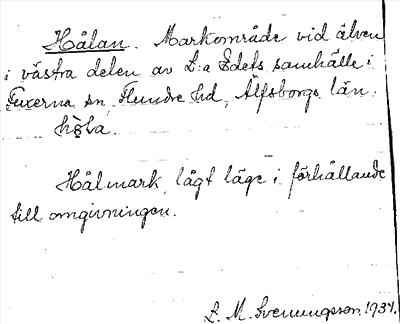 Hålan. Markområde vid älven
i västra delen av L:a Edets samhälle i
Fuxerna sn, Flundre hd, Älfsborgs län.
hå̀la.
Hålmark, lågt läge i förhållande
till omgivningen.
L. M. Svenungsson. 1934.